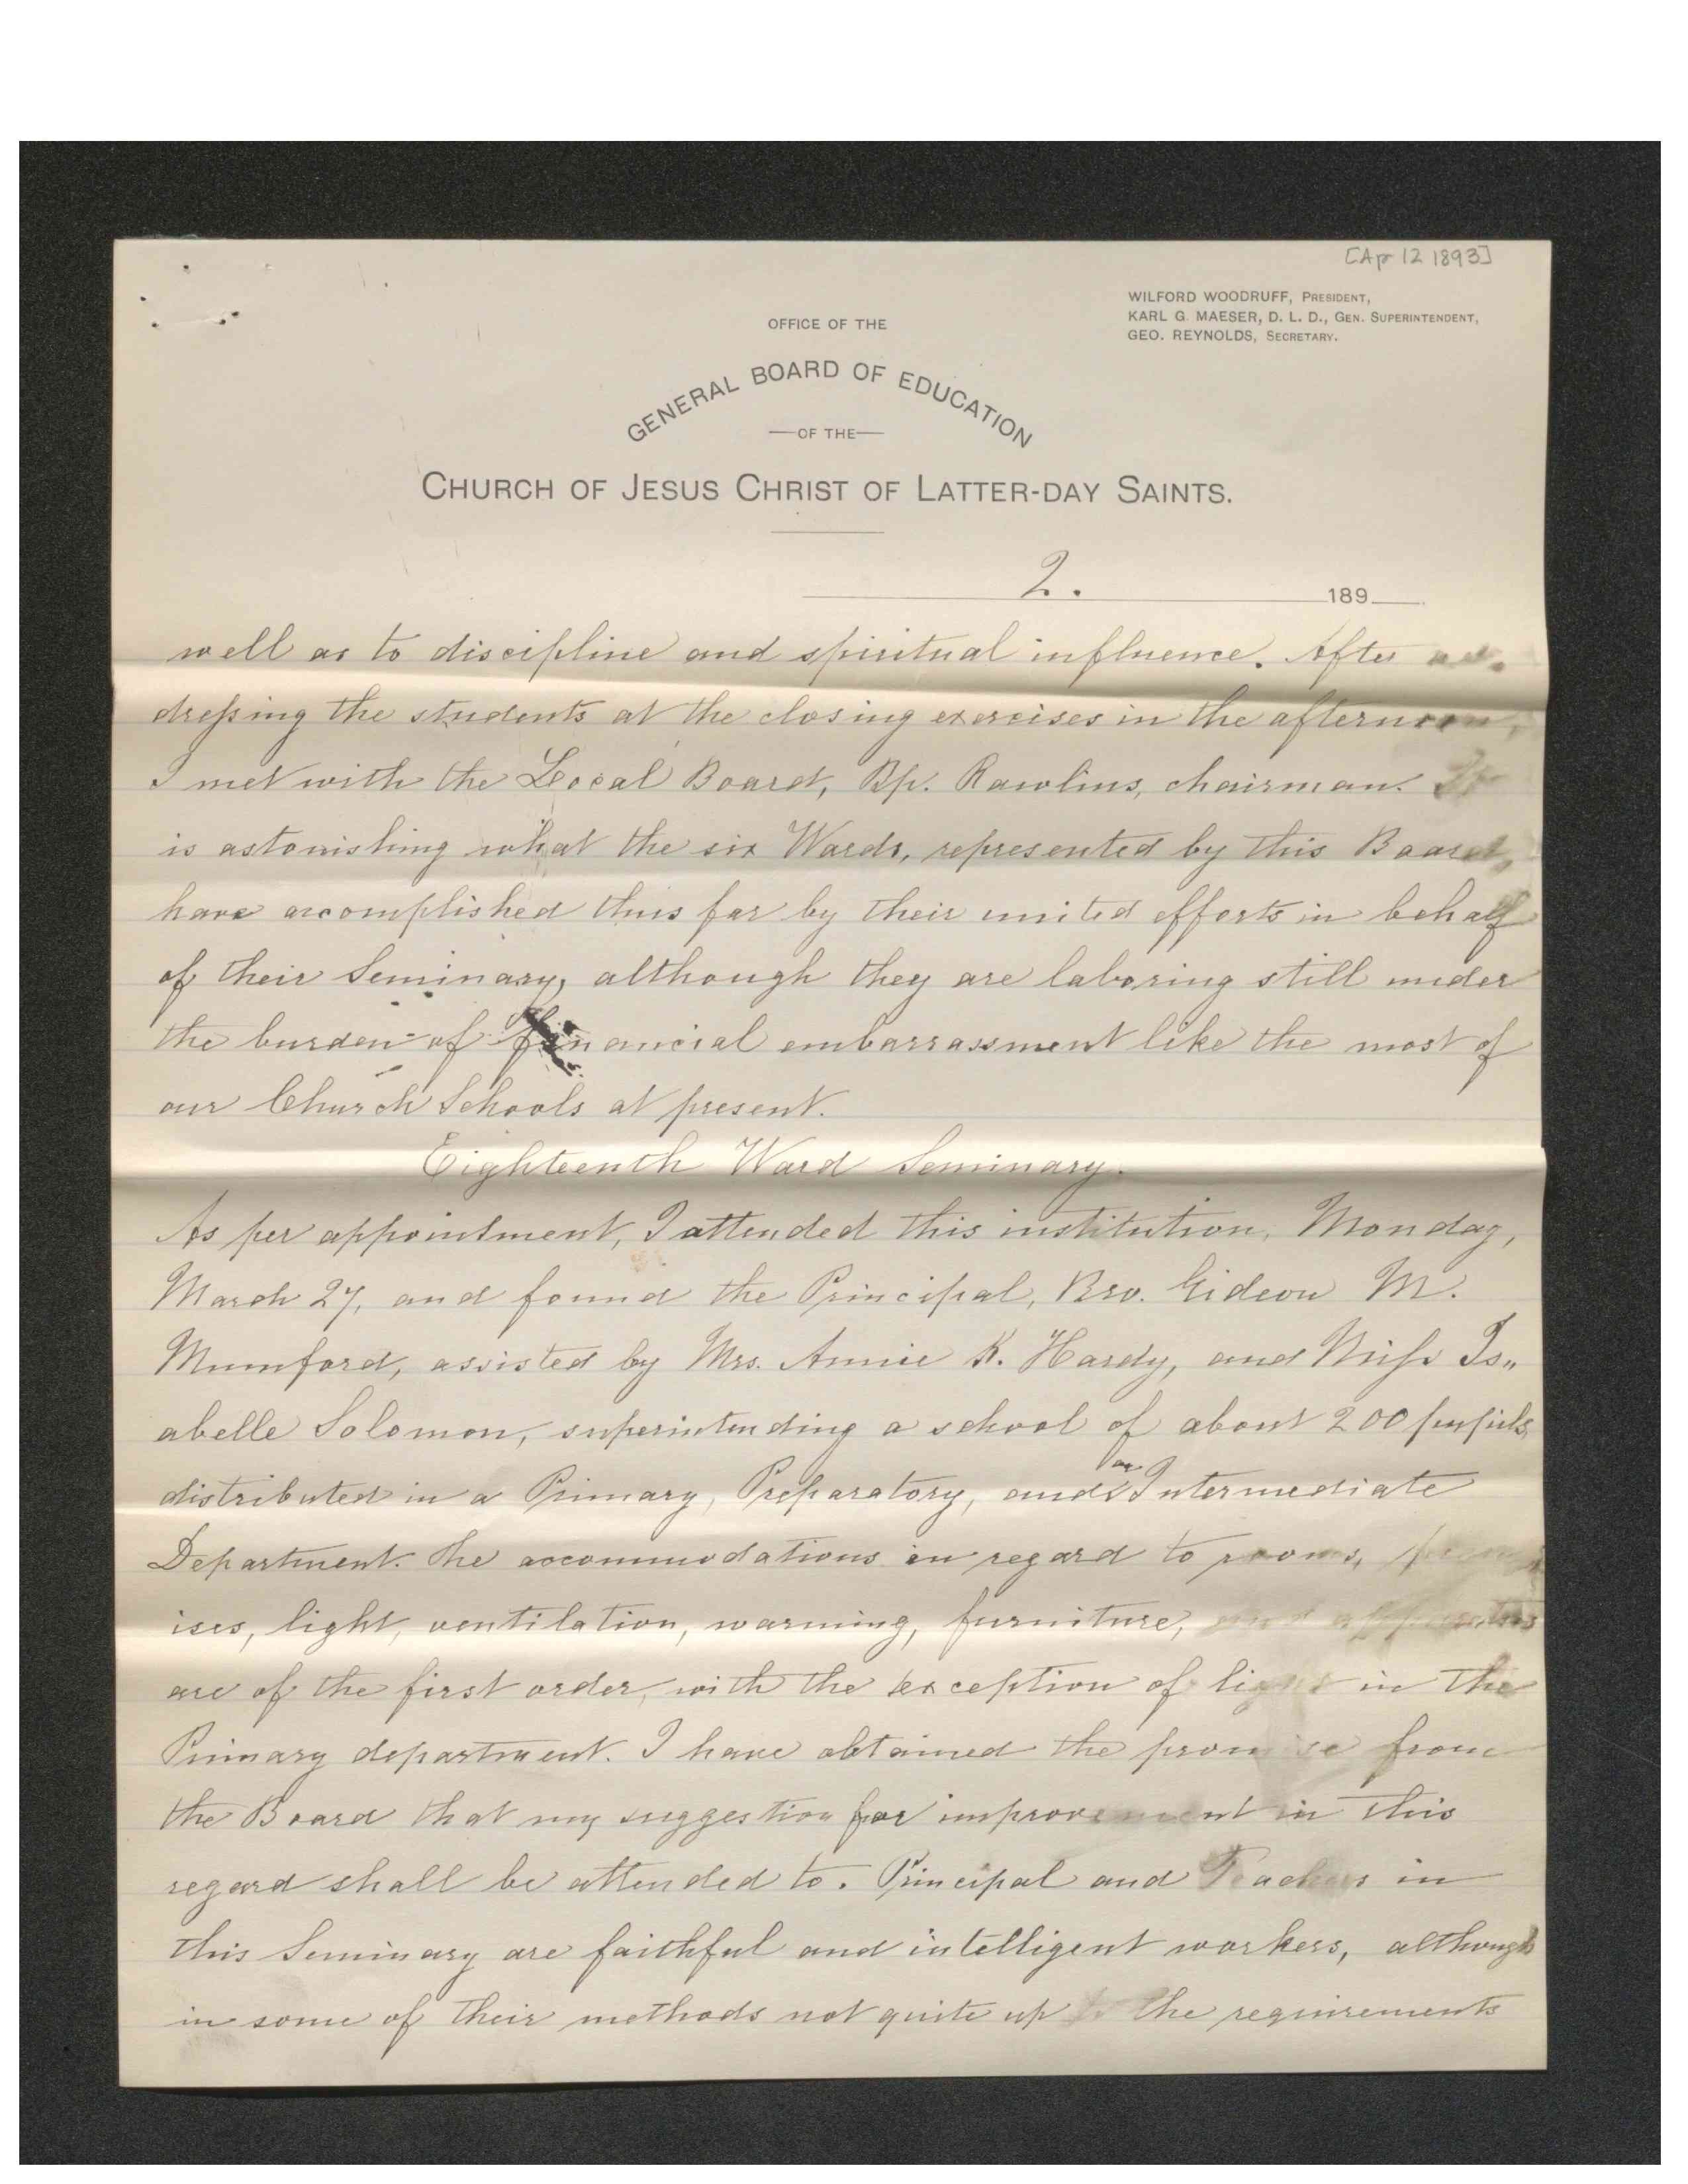 [Apr 12 1893]
WILFORD WOODRUFF, PRESIDENT,
KARL G. MAESER, D. L. D., GEN. SUPERINTENDENT,
GEO. REYNOLDS, SECRETARY.
OFFICE OF THE
GENERAL BOARD OF EDUCATION
—OF THE—
CHURCH OF JESUS CHRIST OF LATTER-DAY SAINTS.
2. 189
well as to discipline and spiritual influence. After ad-
dressing the students at the closing exercises in the afternoon,
I met with the Local Board, Bp. Rawlins, chairman. It
is astonishing what the six Wards, represented by this Board,
have accomplished thus far by their united efforts in behalf
of their Seminary, although they are laboring still under
the burden of financial embarrassment like the most of
our Church Schools at present.
Eighteenth Ward Seminary.
As per appointment, I attended this institution, Monday,
March 27, and found the Principal, Bro. Gideon M.
Mumford, assisted by Mrs. Annie K. Hardy, and Miss Is„
abelle Solomon, superintending a school of about 200 pupils,
distributed in a Primary, Preparatory, and an Intermediate
Department. The accommodations in regard to rooms, prem
ises, light, ventilation, warming, furniture, and apparatus
are of the first order, with the exception of light in the
Primary department. I have obtained the promise from
the Board that my suggestion for improvement in this
regard shall be attended to. Principal and Teachers in
this Seminary are faithful and intelligent workers, although
in some of their methods not quite up to the requirements